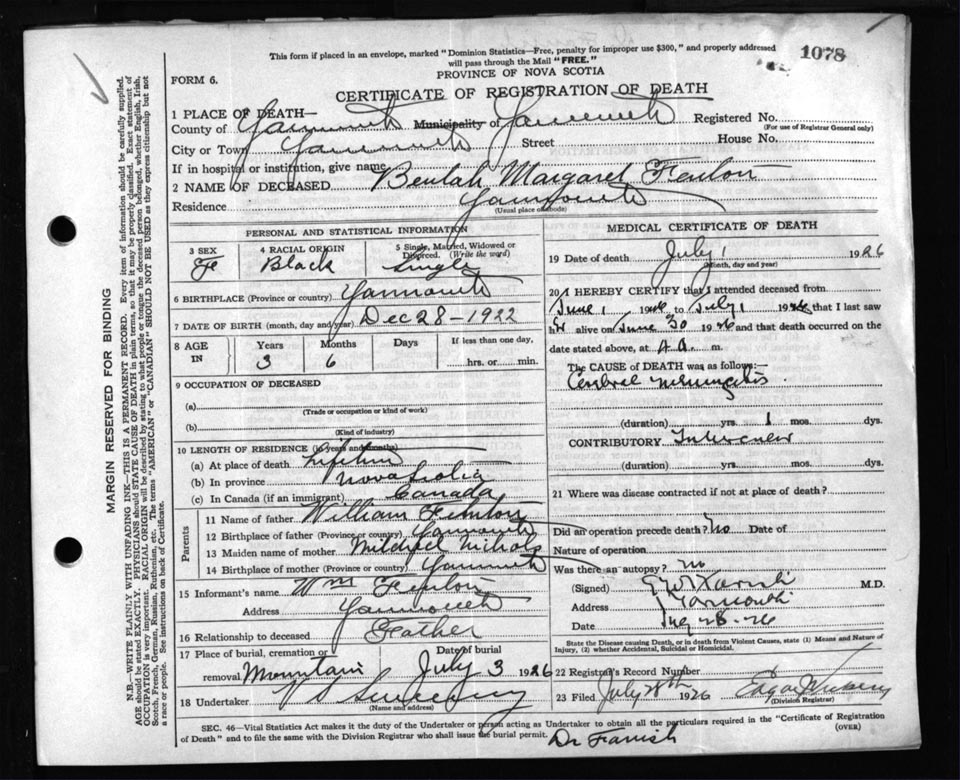 This form if placed in an envelope, marked "Dominion Statistics—Free, penalty for improper use $300," and properly addressed
will pass through the Mail "FREE."
1078
PROVINCE OF NOVA SCOTIA
FORM 6.
CERTIFICATE OF REGISTRATION OF DEATH
1 PLACE OF DEATH—
County of Yarmouth Municipality of Yarmouth Registered No.
(For use of Registrar General only)
City or Town Yarmouth Street House No.
If in hospital or institution, give name
2 NAME OF DECEASED Beulah Margaret Fenton
Residence Yarmouth
(Usual place of abode)
PERSONAL AND STATISTICAL INFORMATION
3 SEX F
4 RACIAL ORIGIN Black
5 Single, Married, Widowed or Divorced. (Write the word) Single
6 BIRTHPLACE (Province or country) Yarmouth
7 DATE OF BIRTH (month, day and year) Dec 28—1922
8 AGE IN Years 3 Months 6 Days If less than one day, hrs. or min.
9 OCCUPATION OF DECEASED
(a) (Trade or occupation or kind of work)
(b) (Kind of industry)
10 LENGTH OF RESIDENCE (in years and months)
(a) At place of death Lifetime
(b) In province Nova Scotia
(c) In Canada (if an immigrant) Canada
Parents
11 Name of father William Fenton
12 Birthplace of father (Province or country) Yarmouth
13 Maiden name of mother Mildred Nichols
14 Birthplace of mother (Province or country) Yarmouth
15 Informant's name Wm Fenton
Address Yarmouth
16 Relationship to deceased Father
17 Place of burial, cremation or removal Mountain Date of burial July 3 1926
18 Undertaker V Sweeny
(Name and address)
MEDICAL CERTIFICATE OF DEATH
19 Date of death July 1 1926
(Month, day and year)
20 I HEREBY CERTIFY that I attended deceased from
June 1 1926 to July 1 1926 that I last saw
her alive on June 30 1926 and that death occurred on the
date stated above, at A. m.
The CAUSE of DEATH was as follows:
Cerebral meningitis
(duration) yrs. 1 mos. dys.
CONTRIBUTORY
(duration) yrs. mos. dys.
21 Where was disease contracted if not at place of death?
Did an operation precede death? no Date of
Nature of operation
Was there an autopsy? no
(Signed) M.D.
Address Yarmouth
Date 28-26
State the Disease causing Death, or in death from Violent Causes, state (1) Means and Nature of
Injury, (2) whether Accidental, Suicidal or Homicidal.
22 Registrar's Record Number
23 Filed July 28th 1926 Edgar
(Division Registrar)
SEC. 46—Vital Statistics Act makes it the duty of the Undertaker or person acting as Undertaker to obtain all the particulars required in the "Certificate of Registration
of Death" and to file the same with the Division Registrar who shall issue the burial permit.
(OVER)
Dr Farish
MARGIN RESERVED FOR BINDING
N.B.—WRITE PLAINLY WITH UNFADING INK—THIS IS A PERMANENT RECORD. Every item of information should be carefully supplied.
AGE should be stated EXACTLY. PHYSICIANS should STATE CAUSE OF DEATH in plain terms, so that it may be properly classified. Exact statement of
OCCUPATION is very important. RACIAL ORIGIN will be described by stating to what people or tongue the deceased person belonged, whether English, Irish,
Scotch, French, German, Russian, Ruthenian, etc. The terms "AMERICAN" or "CANADIAN" SHOULD NOT BE USED as they express citizenship but not
a race or people. See instructions on back of Certificate.